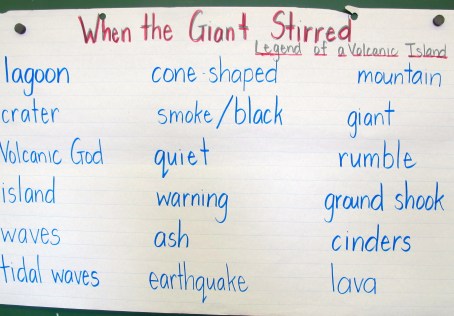 When the Giant Stirred
Legend of a Volcanic Island
lagoon cone-shaped mountain
crater smoke/black giant
Volcanic God quiet rumble
island warning ground shook
waves ash cinders
tidal waves earthquake lava